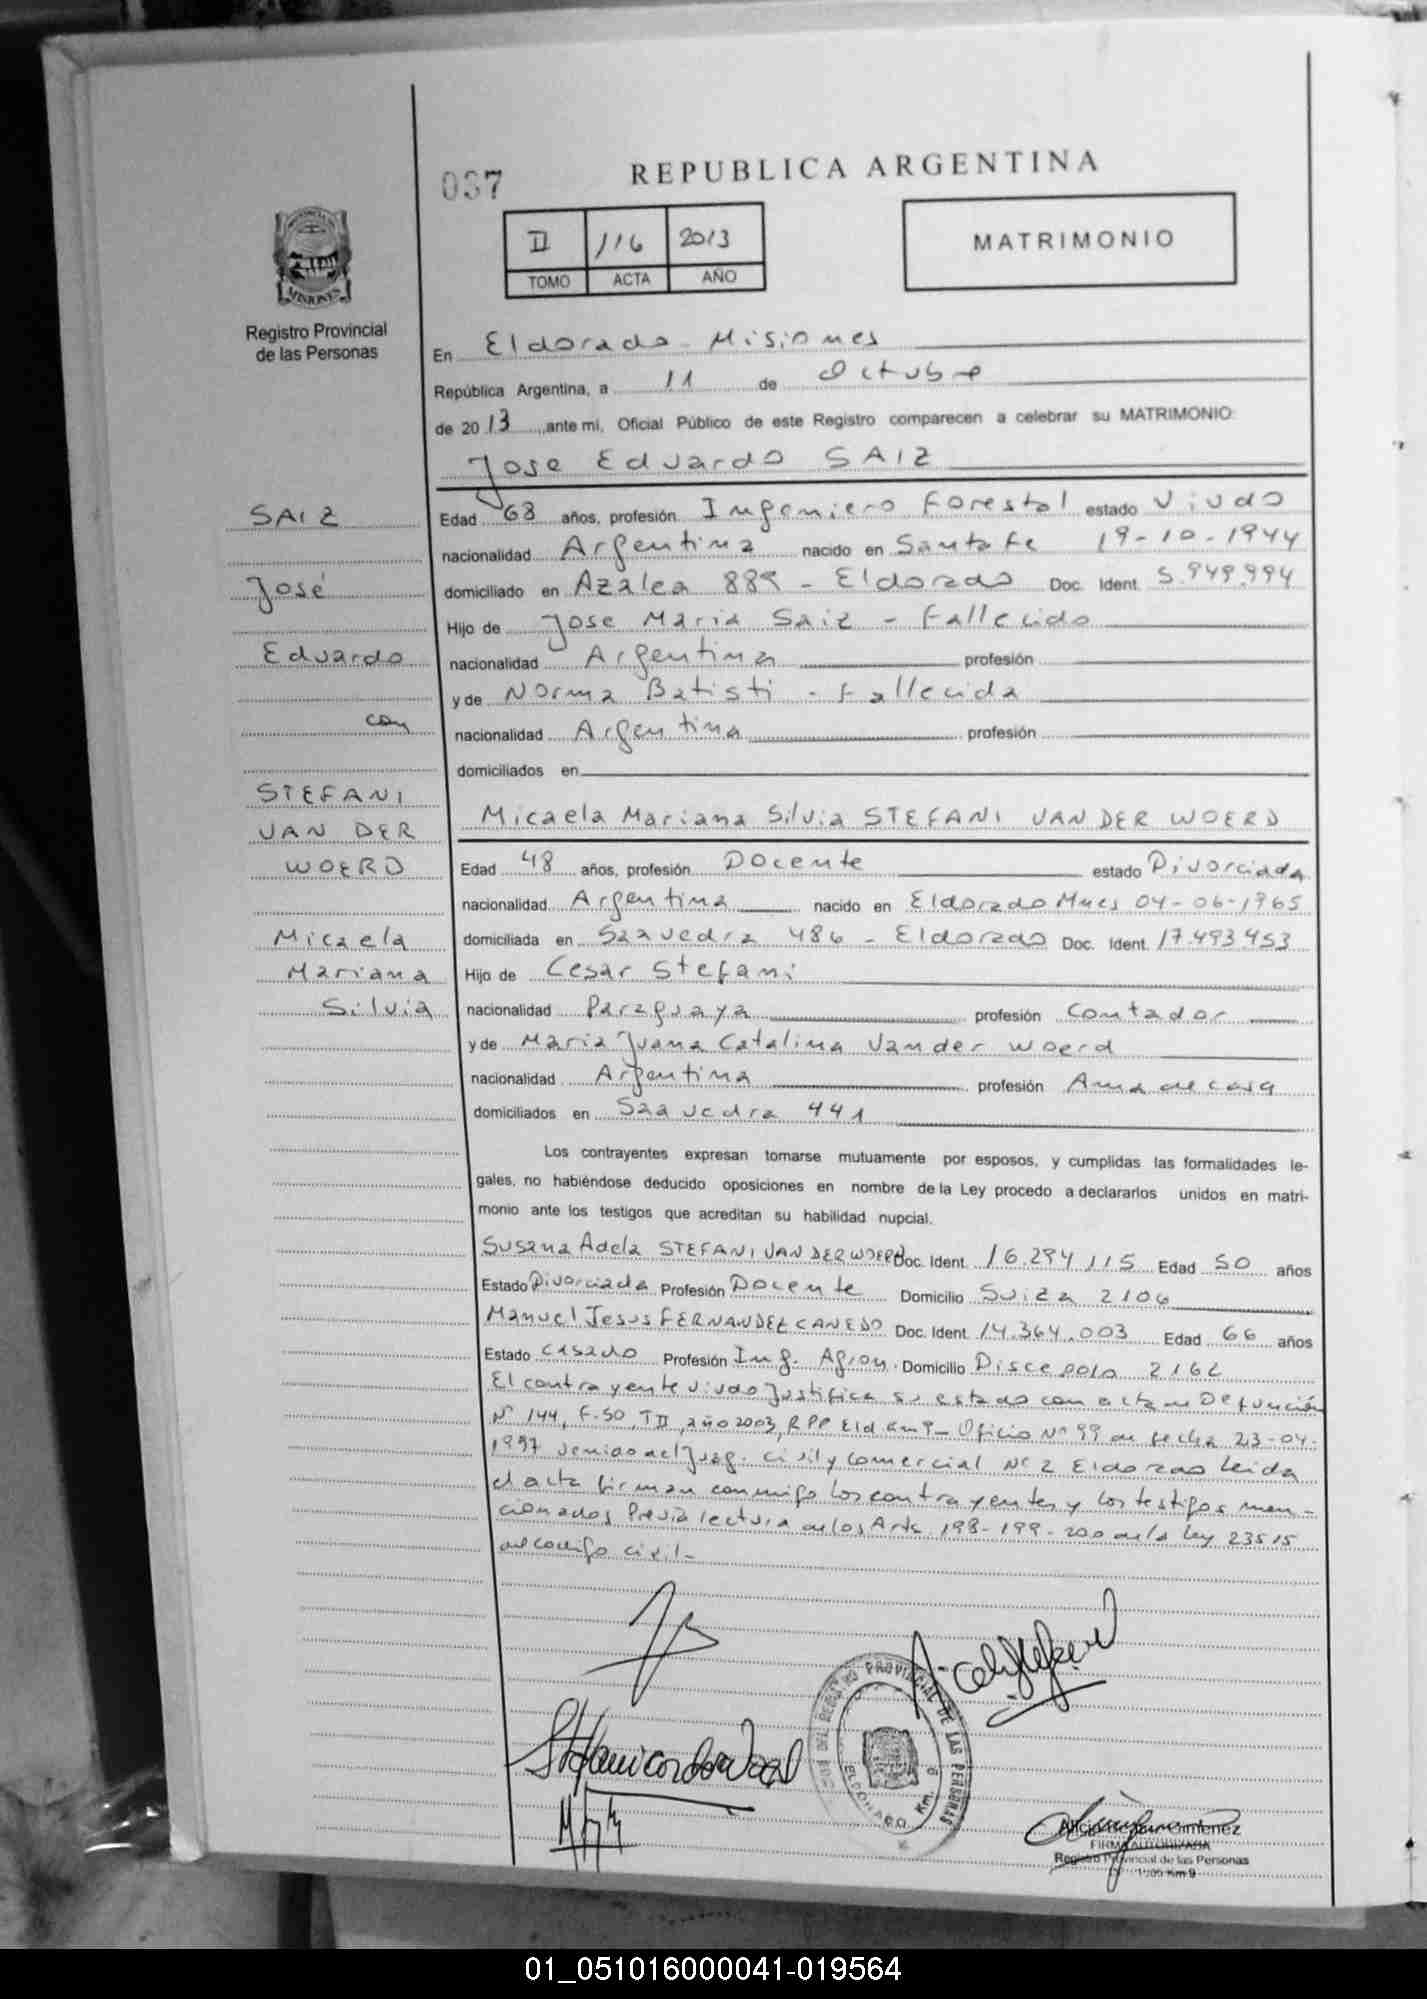 037
REPUBLICA ARGENTINA
II 116 2013
TOMO ACTA AÑO
MATRIMONIO
MISIONES
Registro Provincial
de las Personas
En Eldorado - Misiones
República Argentina, a 11 de Octubre
de 2013, ante mi, Oficial Público de este Registro comparecen a celebrar su MATRIMONIO:
Jose Eduardo SAIZ
SAIZ
José
Eduardo
con
STEFANI
VAN DER
WOERD
Micaela
Mariana
Silvia
Edad 68 años, profesión Ingeniero Forestal estado Viudo
nacionalidad Argentina nacido en Santa Fe 19-10-1944
domiciliado en Azalea 889 - Eldorado Doc. Ident. 5.949.994
Hijo de Jose Maria Saiz - Fallecido
nacionalidad Argentina profesión
y de Norma Batisti - Fallecida
nacionalidad Argentina profesión
domiciliados en
Micaela Mariana Silvia STEFANI VAN DER WOERD
Edad 48 años, profesión Docente estado Divorciada
nacionalidad Argentina nacido en Eldorado Mnes 04-06-1965
domiciliada en Saavedra 486 - Eldorado Doc. Ident. 17.493.453
Hijo de Cesar Stefani
nacionalidad Paraguaya profesión Contador
y de Maria Juana Catalina Van der Woerd
nacionalidad Argentina profesión Ama de casa
domiciliados en Saavedra 441
Los contrayentes expresan tomarse mutuamente por esposos, y cumplidas las formalidades le-
gales, no habiéndose deducido oposiciones en nombre de la Ley procedo a declararlos unidos en matri-
monio ante los testigos que acreditan su habilidad nupcial.
Susana Adela STEFANI VAN DER WOERD Doc. Ident. 16.294.115 Edad 50 años
Estado Divorciada Profesión Docente Domicilio Suiza 2106
Manuel Jesus FERNANDEZ CANEDO Doc. Ident. 14.364.003 Edad 66 años
Estado Casado Profesión Ing. Agron. Domicilio Discepolo 2162
El contrayente viudo justifica su estado con acta de Defunción
Nº 144, F-50, TII, año 2003, RPP Eld Km 9 - Oficio Nº 99 de fecha 23-04-
1997 venido del Juzg. Civil y Comercial Nº 2 Eldorado Leida
el acta firman conmigo los contrayentes y los testigos men-
cionados Previa lectura de los Arts. 198-199-200 de la Ley 23515
del codigo civil-
REGISTRO PROVINCIAL DE LAS PERSONAS
ELDORADO Km. 9
Gimenez
FIRMA AUTORIZADA
Registro Provincial de las Personas
Km 9
01_051016000041-019564